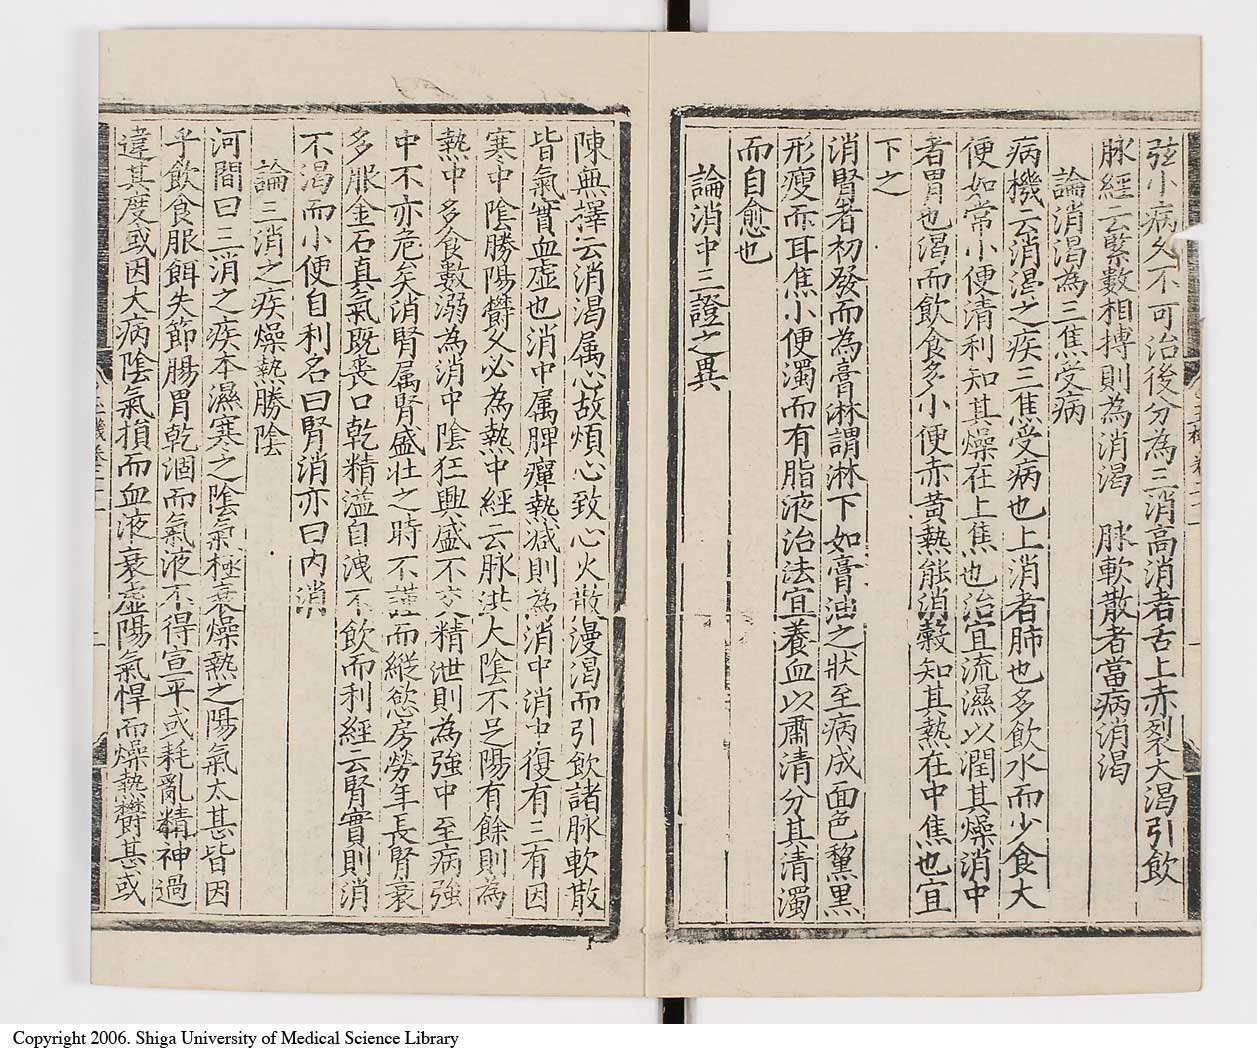 弦小病久不可治後分為三消高消者舌上赤裂大渴引飲
脉經云緊數相搏則為消渴　脉軟散者當病消渴
論消渴為三焦受病
病機云消渴之疾三焦受病也上消者肺也多飲水而少食大
便如常小便清利知其燥在上焦也治宜流濕以潤其燥消中
者胃也渴而飲食多小便赤黃熱能消穀知其熱在中焦也宜
下之
消腎者初發而為膏淋謂淋下如膏油之狀至病成面色黧黑
形瘦而耳焦小便濁而有脂液治法宜養血以肅清分其清濁
而自愈也
論消中三證之異
陳無擇云消渴属心故煩心致心火散漫渴而引飲諸脉軟散
皆氣實血虛也消中属脾癉熱減則為消中消中復有三有因
寒中陰勝陽欝久必為熱中經云脉洪大陰不足陽有餘則為
熱中多食數溺為消中陰狂興盛不交精泄則為強中至病強
中不亦危矣消腎属腎盛壯之時不謹而縱慾房勞年長腎衰
多服金石真氣既喪口乾精溢自洩不飲而利經云腎實則消
不渴而小便自利名曰腎消亦曰內消
論三消之疾燥熱勝陰
河間曰三消之疾本濕寒之陰氣極衰燥熱之陽氣太甚皆因
乎飲食服餌失節腸胃乾涸而氣液不得宣平或耗亂精神過
違其度或因大病陰氣損而血液衰虛陽氣悍而燥熱欝甚或
Copyright 2006. Shiga University of Medical Science Library